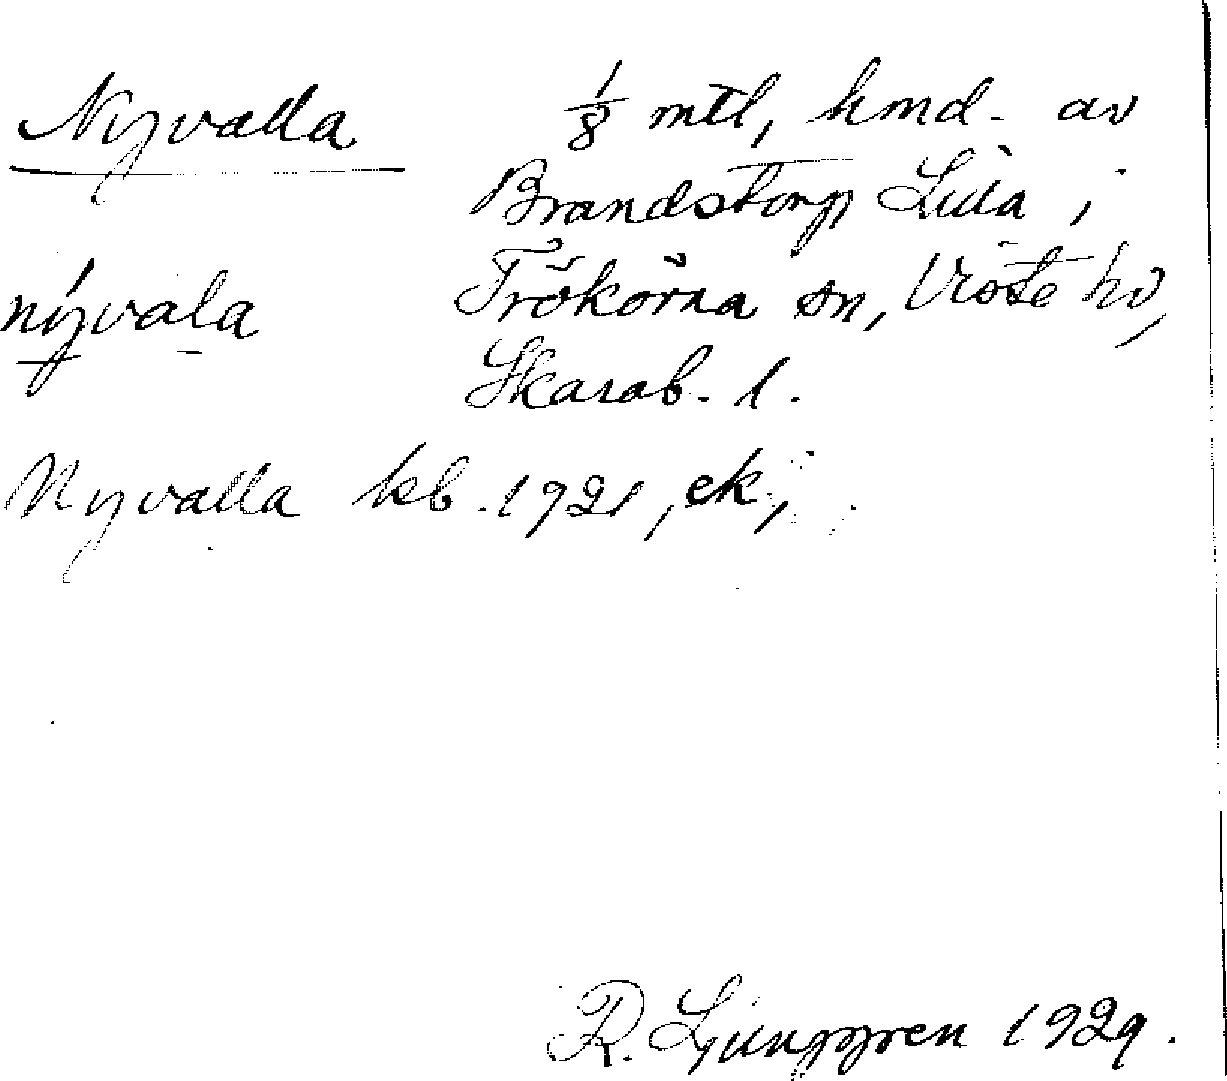 Nyvalla 1/8 mtl, hmd. av
Brandstorp Lilla i
nývala Trökörna sn, Viste hd,
Skarab. l.
Nyvalla kb. 1921, ek,
R. Ljunggren 1929.